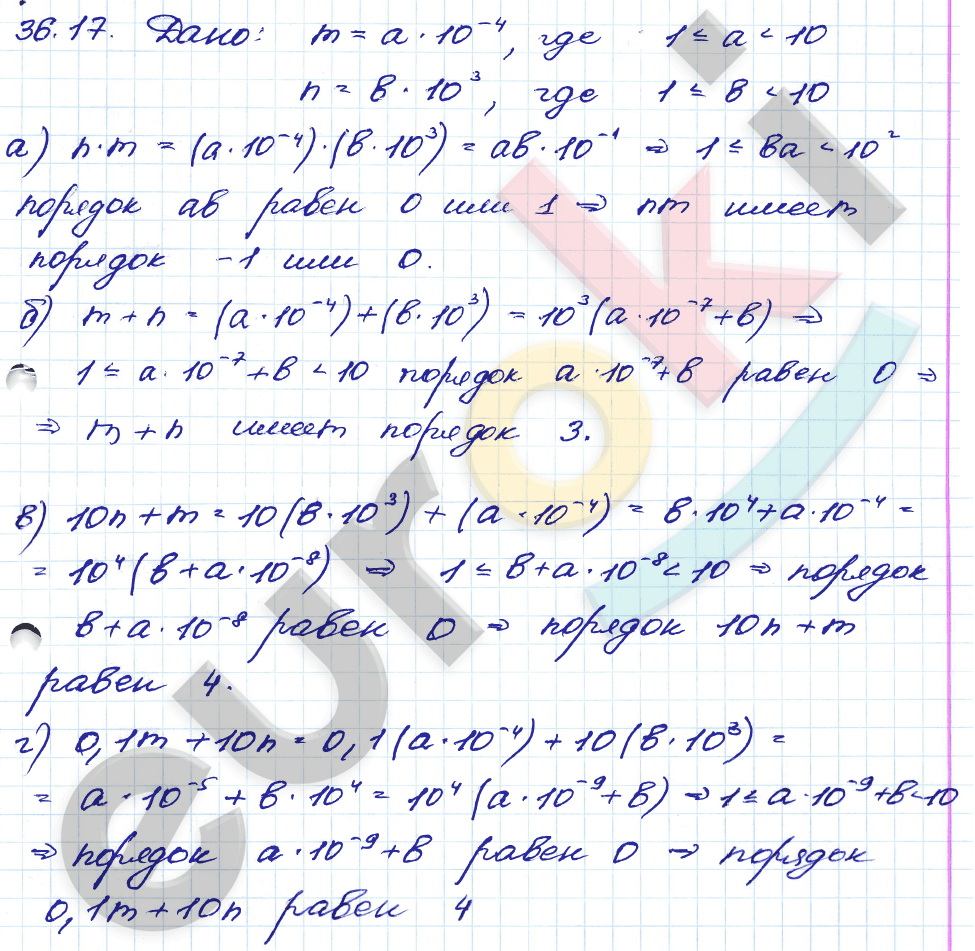 36.17. Дано: m = a · 10⁻⁴, где 1 ≤ a < 10
n = в · 10³, где 1 ≤ в < 10
а) n·m = (a·10⁻⁴)·(в·10³) = aв·10⁻¹ ⇒ 1 ≤ вa < 10²
порядок aв равен 0 или 1 ⇒ nm имеет
порядок -1 или 0.
б) m+n = (a·10⁻⁴)+(в·10³) = 10³(a·10⁻⁷+в) ⇒
1 ≤ a·10⁻⁷+в < 10 порядок a·10⁻⁷+в равен 0 ⇒
⇒ m+n имеет порядок 3.
в) 10n+m = 10(в·10³) + (a·10⁻⁴) = в·10⁴+a·10⁻⁴ =
= 10⁴(в+a·10⁻⁸) ⇒ 1 ≤ в+a·10⁻⁸ < 10 ⇒ порядок
в+a·10⁻⁸ равен 0 ⇒ порядок 10n+m
равен 4.
г) 0,1m+10n = 0,1(a·10⁻⁴)+10(в·10³) =
= a·10⁻⁵+в·10⁴ = 10⁴(a·10⁻⁹+в) ⇒ 1 ≤ a·10⁻⁹+в < 10
⇒ порядок a·10⁻⁹+в равен 0 ⇒ порядок
0,1m+10n равен 4
euroki